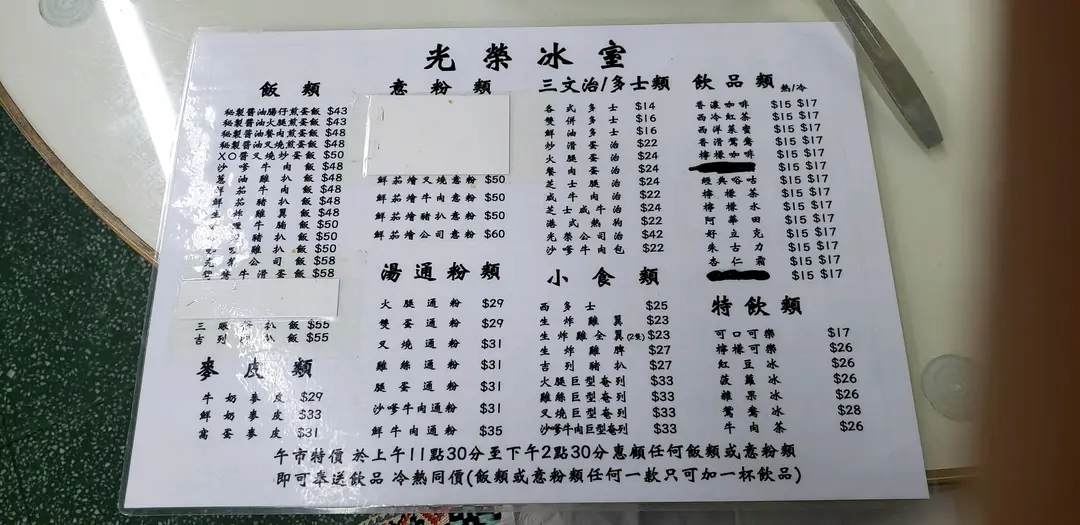 光榮冰室
飯類
秘製醬油腸仔煎蛋飯 $43
秘製醬油火腿煎蛋飯 $43
秘製醬油餐肉煎蛋飯 $48
秘製醬油叉燒煎蛋飯 $48
XO醬叉燒炒蛋飯 $50
沙嗲牛肉飯 $48
蔥油雞扒飯 $50
鮮茄牛肉飯 $48
鮮茄豬扒飯 $48
生炸雞翼飯 $48
牛腩飯 $50
豬扒飯 $50
雞扒飯 $50
公司飯 $58
牛滑蛋飯 $58
三 扒飯 $55
吉列 扒飯 $55
麥皮類
牛奶麥皮 $29
鮮奶麥皮 $33
窩蛋麥皮 $31
意粉類
鮮茄燴叉燒意粉 $50
鮮茄燴牛肉意粉 $50
鮮茄燴豬扒意粉 $50
鮮茄燴公司意粉 $60
湯通粉類
火腿通粉 $29
雙蛋通粉 $29
叉燒通粉 $31
雞絲通粉 $31
腿蛋通粉 $31
沙嗲牛肉通粉 $31
鮮牛肉通粉 $35
三文治/多士類
各式多士 $14
雙併多士 $16
鮮油多士 $16
炒滑蛋治 $22
火腿蛋治 $24
餐肉蛋治 $24
芝士腿治 $24
咸牛肉治 $22
芝士咸牛治 $24
港式熱狗 $22
光榮公司治 $42
沙嗲牛肉包 $22
小食類
西多士 $25
生炸雞翼 $23
生炸雞全翼(2隻) $23
生炸雞髀 $27
吉列豬扒 $27
火腿巨型奄列 $33
雞絲巨型奄列 $33
叉燒巨型奄列 $33
沙嗲牛肉巨型奄列 $33
飲品類 熱/冷
香濃咖啡 $15 $17
西冷紅茶 $15 $17
西洋菜蜜 $15 $17
香滑鴛鴦 $15 $17
檸檬咖啡 $15 $17
$15 $17
經典谷咕 $15 $17
檸檬茶 $15 $17
檸檬水 $15 $17
阿華田 $15 $17
好立克 $15 $17
朱古力 $15 $17
杏仁霜 $15 $17
$15 $17
特飲類
可口可樂 $17
檸檬可樂 $26
紅豆冰 $26
菠蘿冰 $26
雜果冰 $26
鴛鴦冰 $28
牛肉茶 $26
午市特價 於上午11點30分至下午2點30分惠顧任何飯類或意粉類
即可奉送飲品 冷熱同價(飯類或意粉類任何一款只可加一杯飲品)